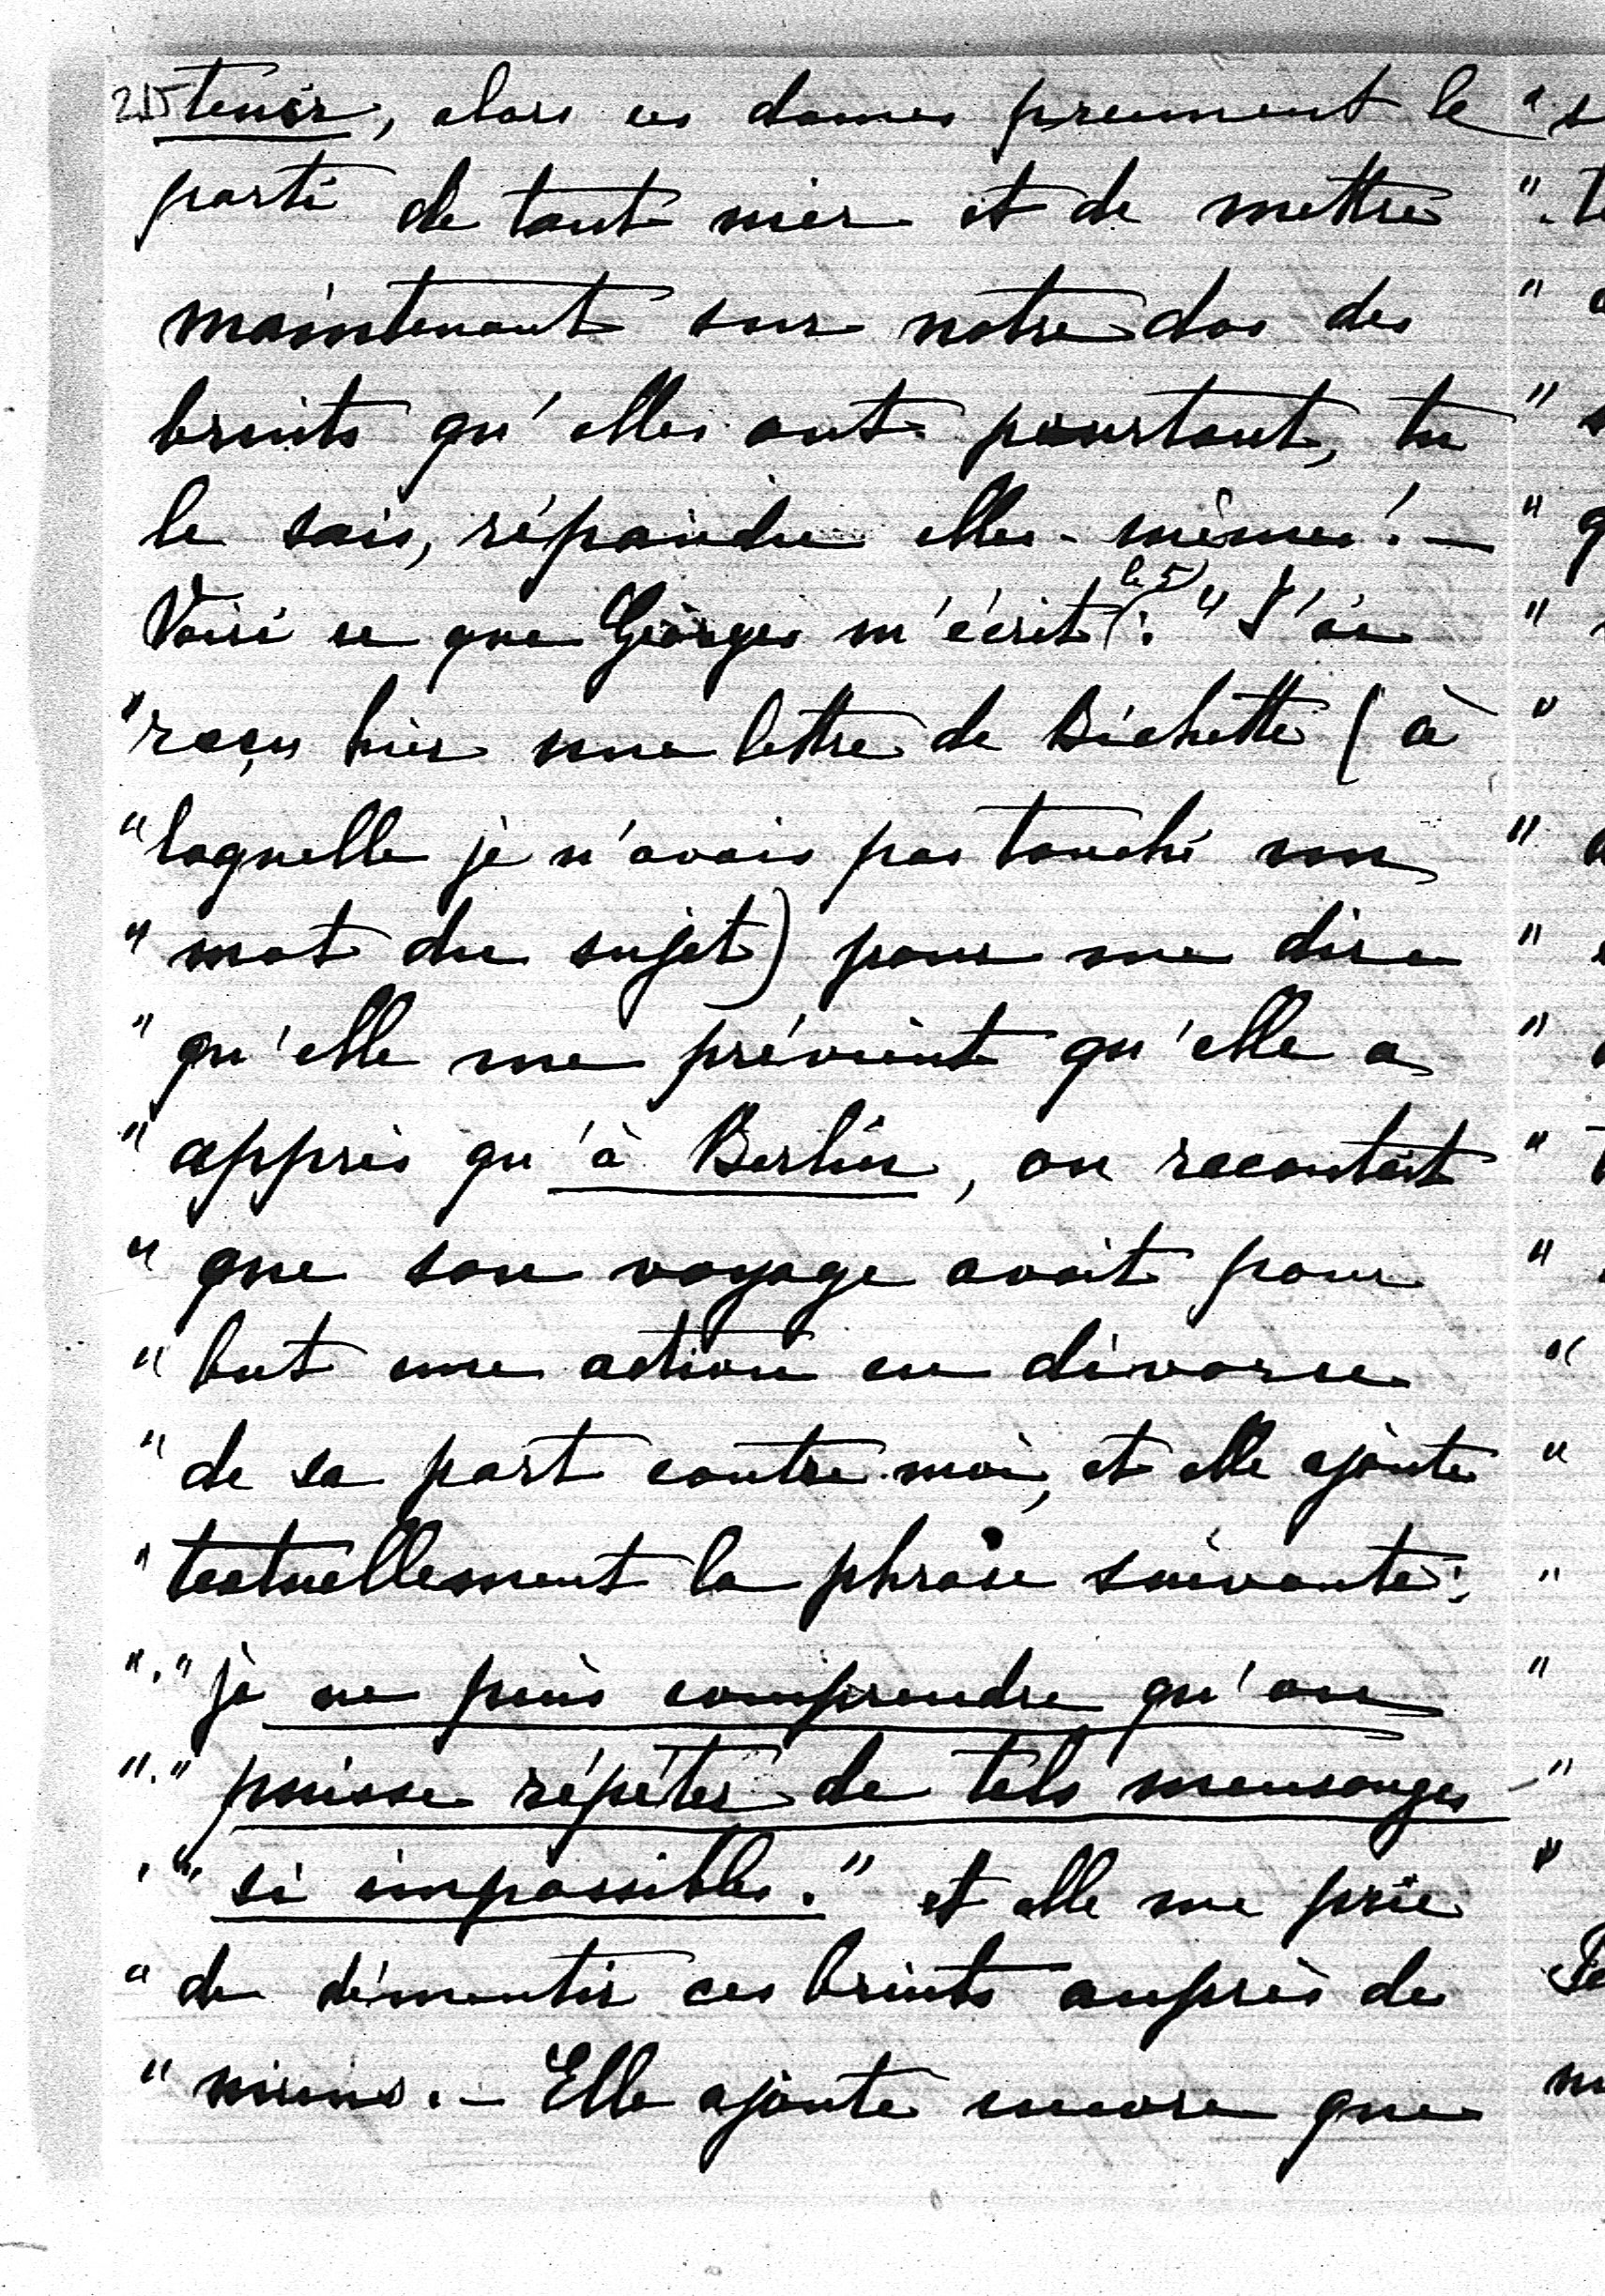 215 tenir, alors ces dames prennent le
parti de tout nier et de mettre
maintenant sur notre dos des
bruits qu'elles ont pourtant, tu
le sais, répandu elles-mêmes! —
Voici ce que Georges m'écrit (le 5): "J'ai
"reçu hier une lettre de Bichette (à
"laquelle je n'avais pas touché un
"mot du sujet) pour me dire
"qu'elle me prévient qu'elle a
"appris qu'à Berlin, on racontait
"que son voyage avait pour
"but une action en divorce
"de sa part contre moi, et elle ajoute
"textuellement la phrase suivante:
"."je ne puis comprendre qu'on
"."puisse répéter de tels mensonges
"."si impossibles." et elle me prie
"de démentir ces bruits auprès des
"miens. — Elle ajoute encore que